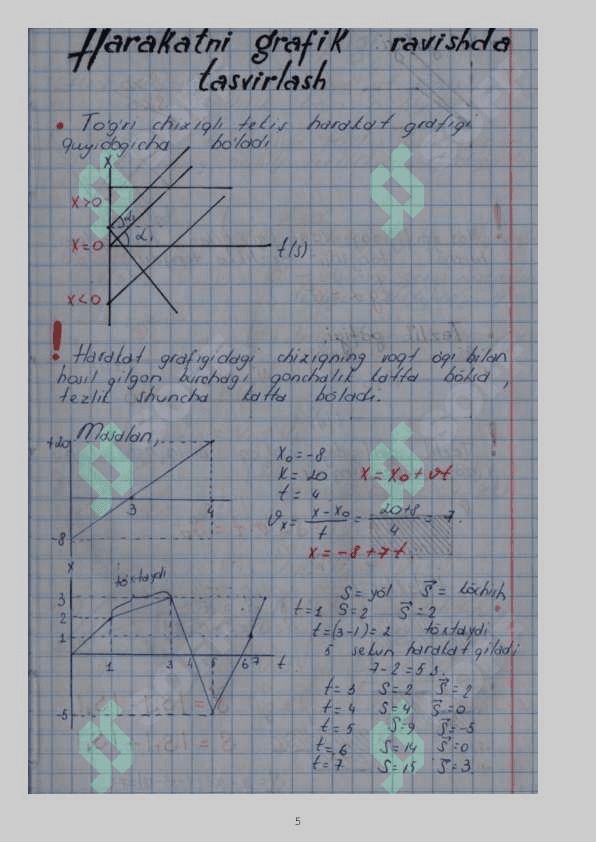 Harakatni grafik ravishda
tasvirlash
• To'g'ri chiziqli tekis harakat grafigi
quyidagicha bo'ladi
x
x>0
α₂
α₁
x=0
t(s)
x<0
! Harakat grafigidagi chiziqning vaqt o'qi bilan
hosil qilgan burchagi qanchalik katta bo'lsa,
tezlik shuncha katta bo'ladi.
Masalan,
+20
3 4
-8
x₀=-8
x=20 x=x₀+ϑt
t=4
ϑₓ= x-x₀/t = 20+8/4 = 7.
x=-8+7t.
x
to'xtaydi
3
2
1
1 3 4 5 6 7 t
-5
S=yo'l S⃗= ko'chish
t=1 S=2 S⃗=2
t=(3-1)=2 to'xtaydi
5 sekun harakat qiladi
7-2=5 s.
t=3 S=2 S⃗=2
t=4 S=4 S⃗=0
t=5 S=9 S⃗=-5
t=6 S=14 S⃗=0
t=7 S=15 S⃗=3
5